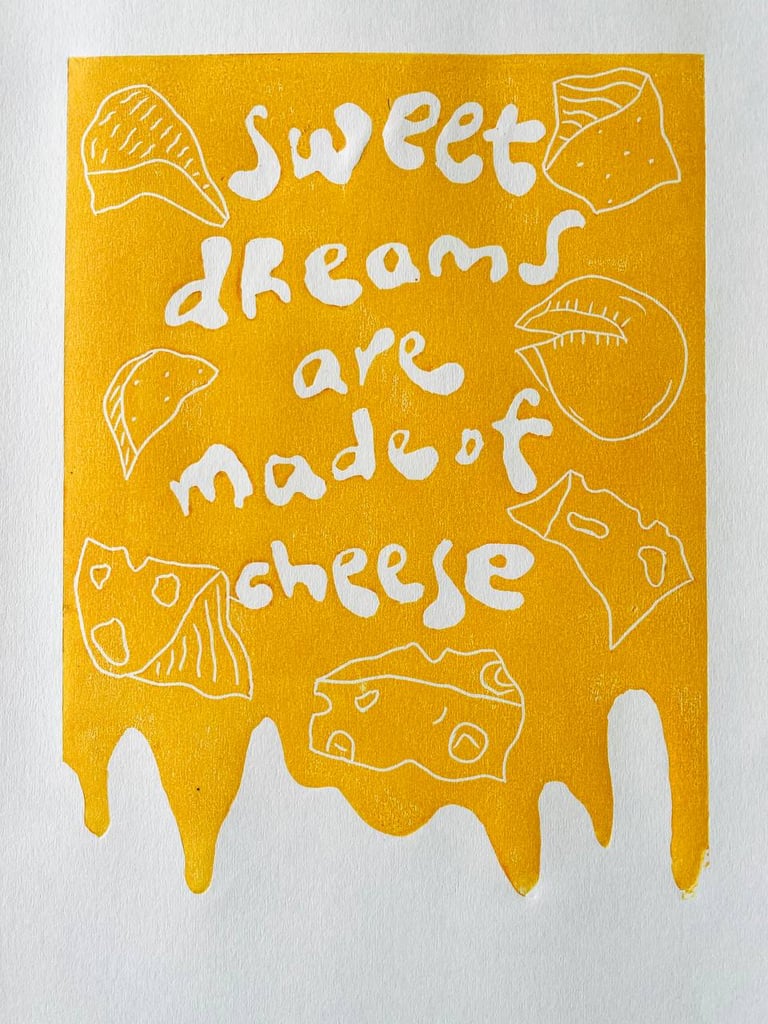 sweet
dreams
are
made of
cheese